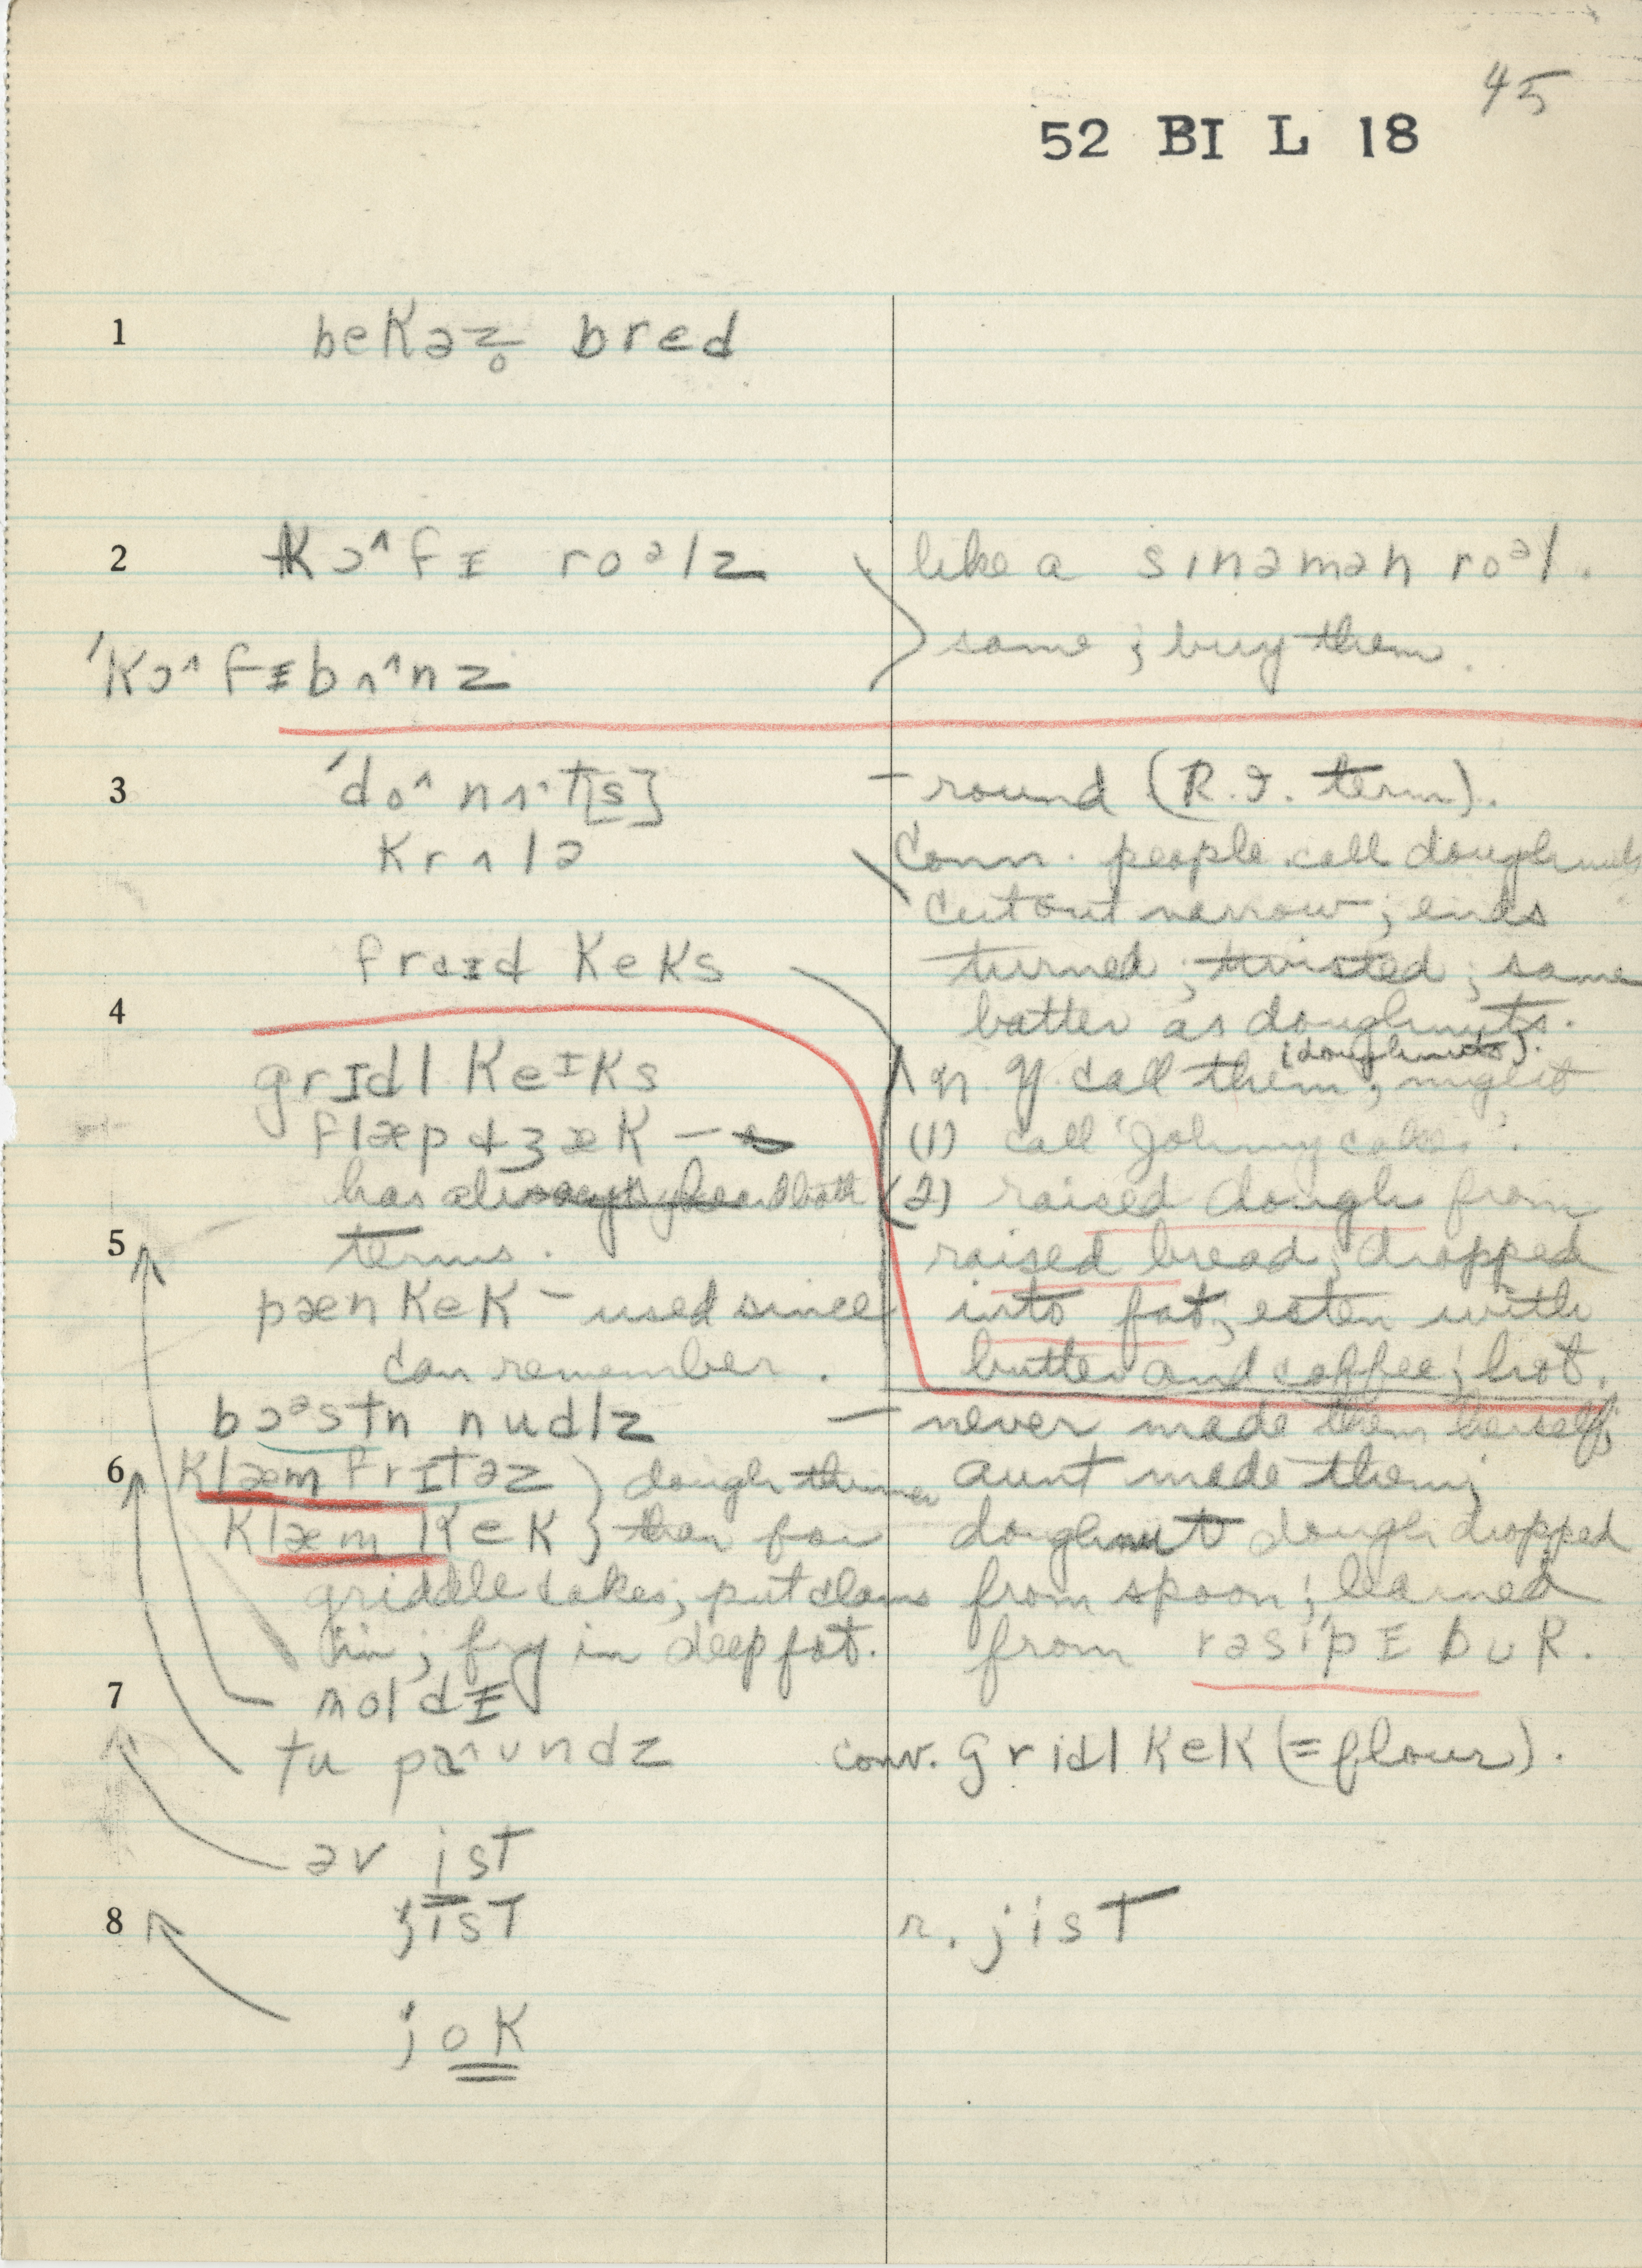 45
52 BI L 18
1 bekəz̥ brɛd
2 kɔ^fɪ roᵊlz like a sɪnəmən roᵊl.
same; buy them.
'kɔ^fɪbʌ^nz
3 'do^nʌt[s] – round (R.I. term).
krʌlə Conn. people call doughnuts
cut out narrow; ends
fraɪd keks turned; twisted; same
4 batter as doughnuts.
(doughnuts).
grɪdl keᴵks N Y. call them; might
flæpdʒæk – (1) call 'Johnny cakes'.
has always heard both (2) raised dough from
5 terms. raised bread; dropped
pænkek – used since into fat; eaten with
can remember. butter and coffee; hot.
bɔᵊstn nudlz – never made them herself;
6 klæm frɪtəz } dough thinner aunt made them;
klæm kek } than for doughnut dough dropped
griddle cakes; put clams from spoon; learned
in; fry in deep fat. from rəsi'pɪ bʊk.
7 moldɪ
tu pa^ʊndz conv. grɪdl kek (= flour).
əv ist
8 jist r. jist
jok